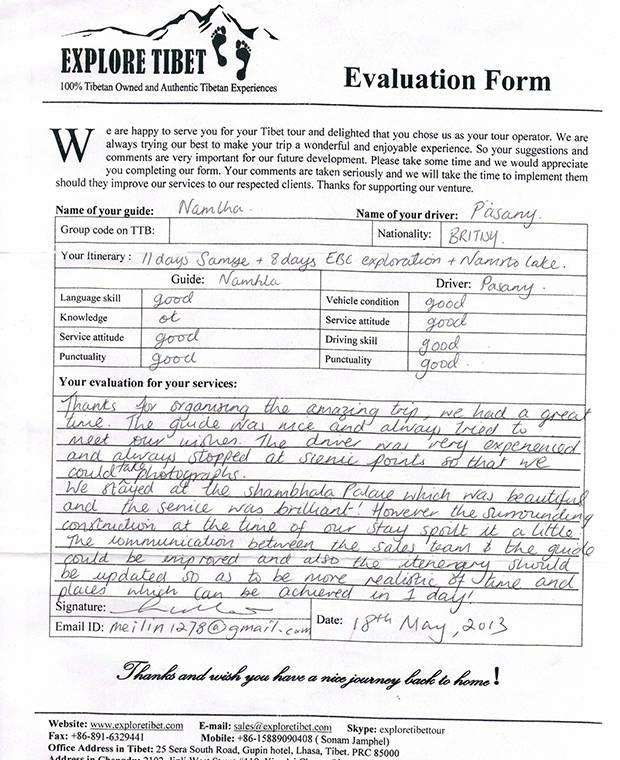 EXPLORE TIBET
100% Tibetan Owned and Authentic Tibetan Experiences
Evaluation Form
We are happy to serve you for your Tibet tour and delighted that you chose us as your tour operator. We are
always trying our best to make your trip a wonderful and enjoyable experience. So your suggestions and
comments are very important for our future development. Please take some time and we would appreciate
you completing our form. Your comments are taken seriously and we will take the time to implement them
should they improve our services to our respected clients. Thanks for supporting our venture.
Name of your guide: Namlha. Name of your driver: Pasany.
Group code on TTB: Nationality: BRITISH.
Your Itinerary : 11 days Samye + 8 days EBC exploration + Namtso Lake.
Guide: Namhla Driver: Pasany.
Language skill good Vehicle condition good
Knowledge ot Service attitude good
Service attitude good Driving skill good
Punctuality good Punctuality good.
Your evaluation for your services:
Thanks for organising the amazing trip, we had a great
time. The guide was nice and always tried to
meet our wishes. The driver was very experienced
and always stopped at scenic points so that we
could take photographs.
We stayed at the Shambhala Palace which was beautiful
and the service was brilliant! However the surrounding
construction at the time of our stay spoilt it a little.
The communication between the sales team & the guide
could be improved and also the itenerary should
be updated so as to be more realistic of time and
places which can be achieved in 1 day!
Signature:
Email ID: meilin1278@gmail.com Date: 18th May, 2013
Thanks and wish you have a nice journey back to home!
Website: www.exploretibet.com E-mail: sales@exploretibet.com Skype: exploretibettour
Fax: +86-891-6329441 Mobile: +86-15889090408 ( Sonam Jamphel)
Office Address in Tibet: 25 Sera South Road, Gupin hotel, Lhasa, Tibet. PRC 85000